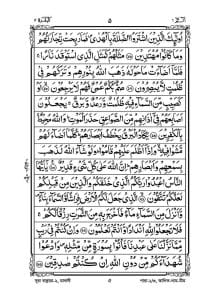 البقرة ٢ ٥ الٓمّٓ ١
أُولٰٓئِكَ الَّذِيْنَ اشْتَرَوُا الضَّلٰلَةَ بِالْهُدٰى فَمَا رَبِحَتْ تِّجَارَتُهُمْ
وَمَا كَانُوْا مُهْتَدِيْنَ ۝ مَثَلُهُمْ كَمَثَلِ الَّذِى اسْتَوْقَدَ نَارًا
فَلَمَّآ اَضَآءَتْ مَا حَوْلَهٗ ذَهَبَ اللّٰهُ بِنُوْرِهِمْ وَتَرَكَهُمْ فِىْ
ظُلُمٰتٍ لَّا يُبْصِرُوْنَ ۝ صُمٌّۢ بُكْمٌ عُمْىٌ فَهُمْ لَا يَرْجِعُوْنَ ۝ اَوْ
كَصَيِّبٍ مِّنَ السَّمَآءِ فِيْهِ ظُلُمٰتٌ وَّرَعْدٌ وَّبَرْقٌ يَجْعَلُوْنَ
اَصَابِعَهُمْ فِىْٓ اٰذَانِهِمْ مِّنَ الصَّوَاعِقِ حَذَرَ الْمَوْتِ وَاللّٰهُ مُحِيْطٌۢ
بِالْكٰفِرِيْنَ ۝ يَكَادُ الْبَرْقُ يَخْطَفُ اَبْصَارَهُمْ كُلَّمَآ اَضَآءَ لَهُمْ
مَّشَوْا فِيْهِ وَاِذَآ اَظْلَمَ عَلَيْهِمْ قَامُوْا وَلَوْ شَآءَ اللّٰهُ لَذَهَبَ
بِسَمْعِهِمْ وَاَبْصَارِهِمْ اِنَّ اللّٰهَ عَلٰى كُلِّ شَىْءٍ قَدِيْرٌ ۝ يٰٓاَيُّهَا
النَّاسُ اعْبُدُوْا رَبَّكُمُ الَّذِىْ خَلَقَكُمْ وَالَّذِيْنَ مِنْ قَبْلِكُمْ
لَعَلَّكُمْ تَتَّقُوْنَ ۝ الَّذِىْ جَعَلَ لَكُمُ الْاَرْضَ فِرَاشًا وَّالسَّمَآءَ بِنَآءً
وَّاَنْزَلَ مِنَ السَّمَآءِ مَآءً فَاَخْرَجَ بِهٖ مِنَ الثَّمَرٰتِ رِزْقًا لَّكُمْ
فَلَا تَجْعَلُوْا لِلّٰهِ اَنْدَادًا وَّاَنْتُمْ تَعْلَمُوْنَ ۝ وَاِنْ كُنْتُمْ فِىْ رَيْبٍ
مِّمَّا نَزَّلْنَا عَلٰى عَبْدِنَا فَاْتُوْا بِسُوْرَةٍ مِّنْ مِّثْلِهٖ وَادْعُوْا
شُهَدَآءَكُمْ مِّنْ دُوْنِ اللّٰهِ اِنْ كُنْتُمْ صٰدِقِيْنَ ۝